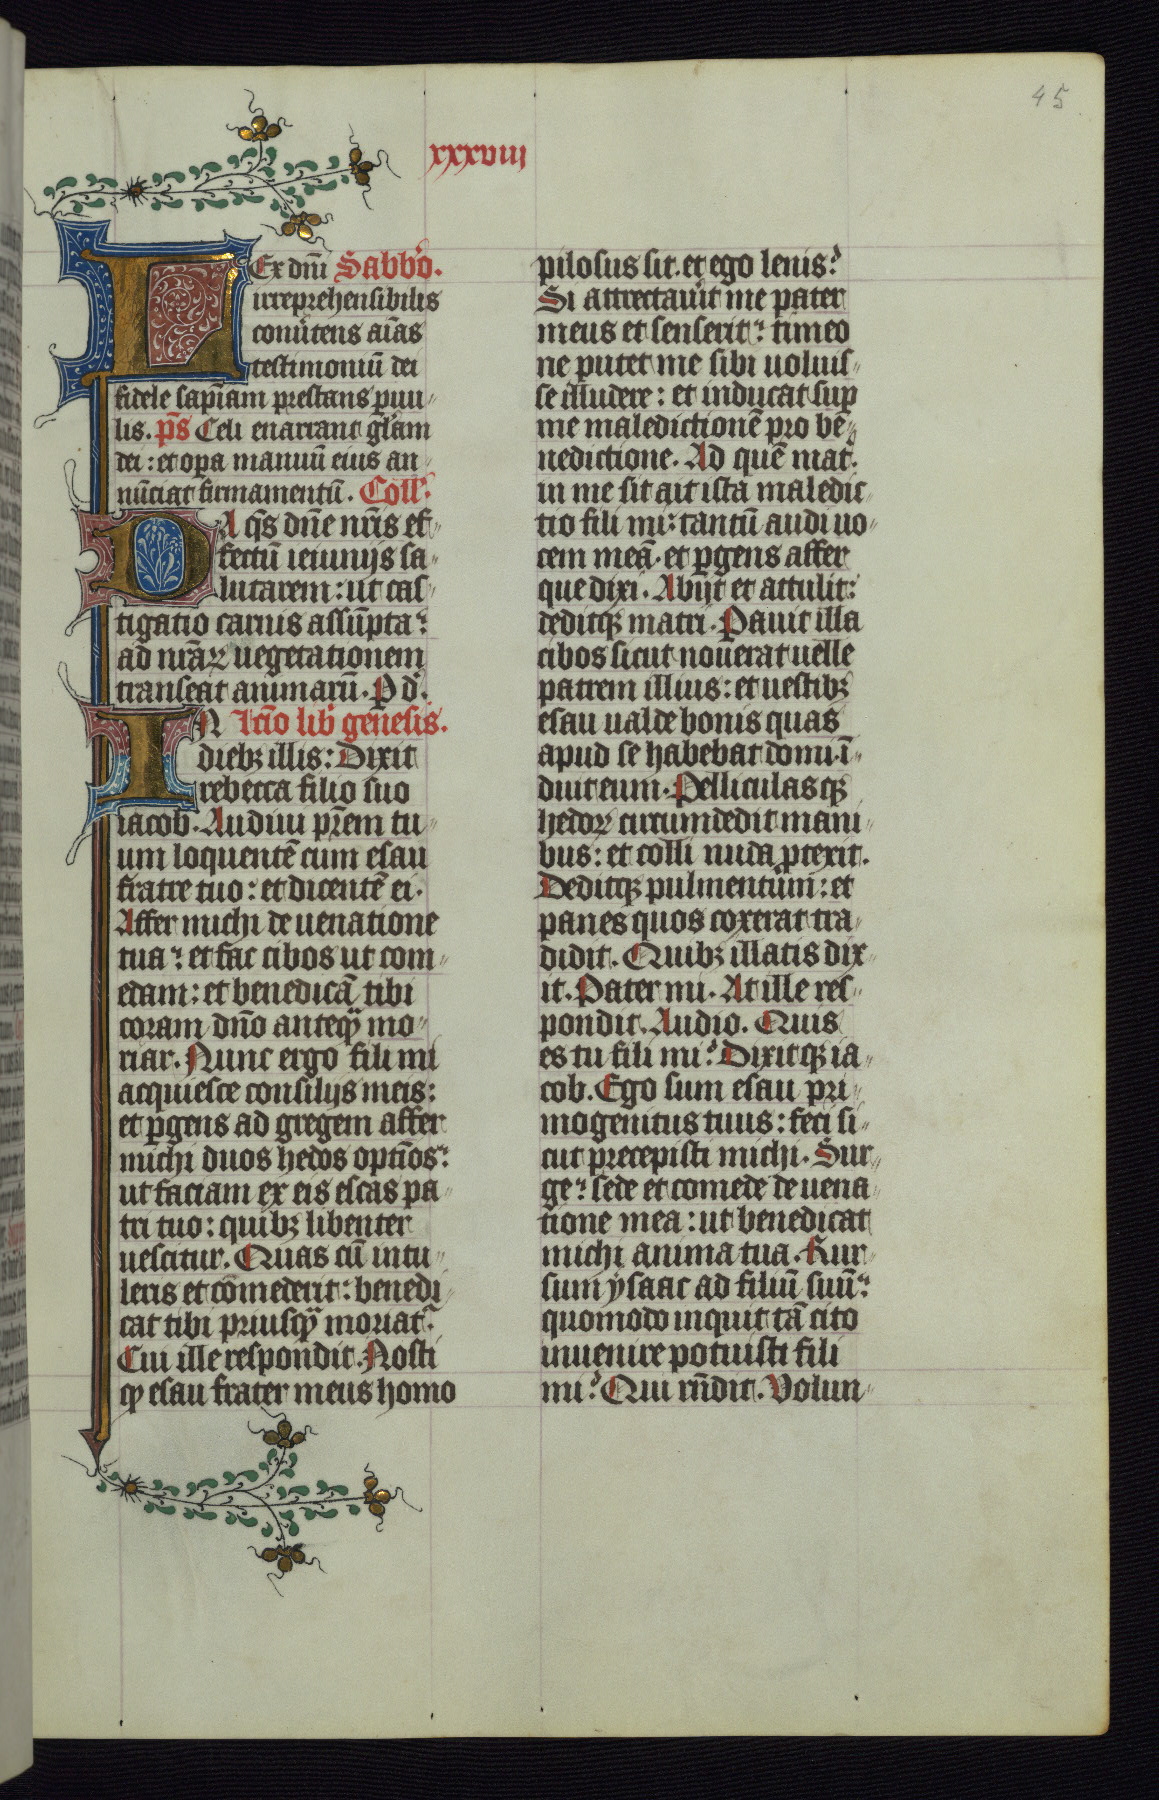 45
xxxviij
LEx dn̄i Sabbō.
irreprehensibilis
conu̾tens aīas
testimoniū dei
fidele sapīam prestans puu-
lis. p̄s Celi enarrant gl̄am
dei: et opa manuū eius an-
nūciat firmamentū. Coll̾.
DA q̄s dn̄e nr̄is ef-
fectū ieiunijs sa-
lutarem: ut cas-
tigatio carnis assūpta:
ad nr̄aꝝ uegetationem
transeat animarū. P d̾.
IN Lcīo lib̾ genesis.
diebꝫ illis: Dixit
rebecca filio suo
iacob. Audiui pr̄em tu-
um loquentē cum esau
fratre tuo: et dicentē ei.
Affer michi de uenatione
tua: et fac cibos ut com-
edam: et benedicā tibi
coram dn̄o anteqͣ mo-
riar. Nunc ergo fili mi
acquiesce consilijs meis:
et ꝑgens ad gregem affer
michi duos hedos optīos:
ut faciam ex eis escas pa-
tri tuo: quibꝫ libenter
uescitur. Quas cū intu-
leris et cōmederit: benedi-
cat tibi priusqͣ moriat̾.
Cui ille respondit. Nosti
ꝙ esau frater meus homo
pilosus sit. et ego lenis:
Si attrectau̾it me pater
meus et senserit: timeo
ne putet me sibi uoluis-
se illudere: et inducat sup
me maledictionē pro be-
nedictione. Ad quē mat̾.
in me sit ait ista maledic-
tio fili mi: tantū audi uo-
cem meā. et ꝑgens affer
que dixi. Abijt et attulit:
deditqꝫ matri. Pauit illa
cibos sicut nouerat uelle
patrem illius: et uestibꝫ
esau ualde bonis quas
apud se habebat domi. ī-
duit eum. Pelliculasqꝫ
hedoꝝ circumdedit mani-
bus: et colli nuda ꝓtexit.
Deditqꝫ pulmentum: et
panes quos coxerat tra-
didit. Quibꝫ illatis dix-
it. Pater mi. At ille res-
pondit. Audio. Quis
es tu fili mi: Dixitqꝫ ia-
cob. Ego sum esau pri-
mogenitus tuus: feci si-
cut precepisti michi. Sur-
ge: sede et comede de uena-
tione mea: ut benedicat
michi anima tua. Rur-
sum ysaac ad filiū suū:
quomodo inquit tā cito
inuenire potuisti fili
mi: Qui rn̄dit. Volun-